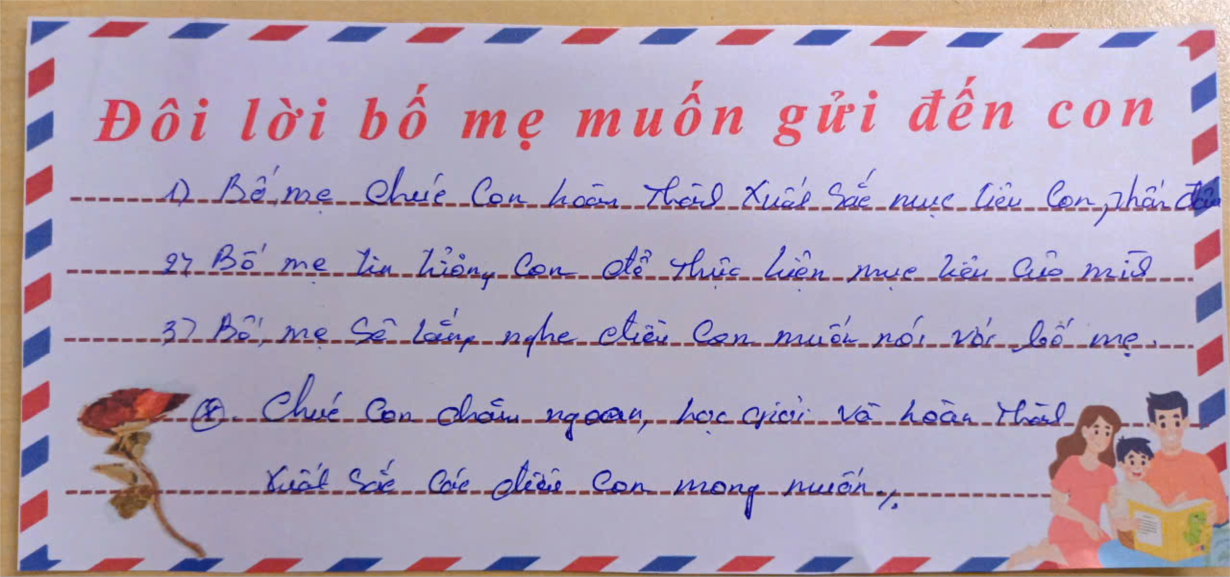 Đôi lời bố mẹ muốn gửi đến con
1) Bố, mẹ chúc con hoàn thành xuất sắc mục tiêu con phấn đấu
2) Bố mẹ tin tưởng con để thực hiện mục tiêu của mình
3) Bố, mẹ sẽ lắng nghe điều con muốn nói với bố mẹ.
(*). Chúc con chăm ngoan, học giỏi và hoàn thành
xuất sắc các điều con mong muốn./.